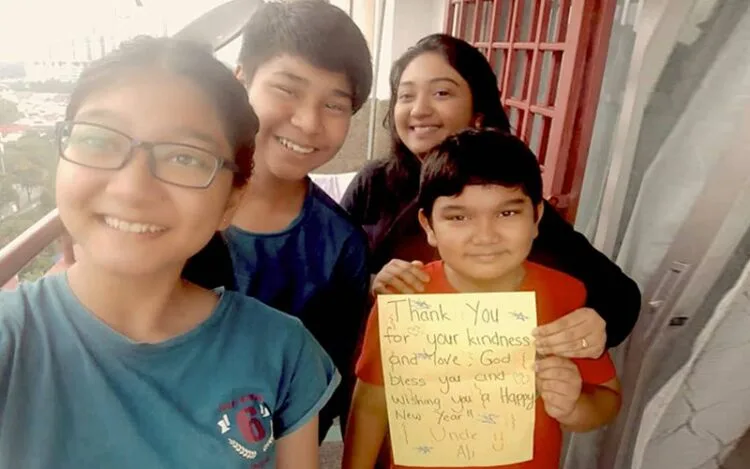 Thank You
for your kindness
and love. God
bless you and
wishing you "a Happy
New Year"
Uncle
Ali
6